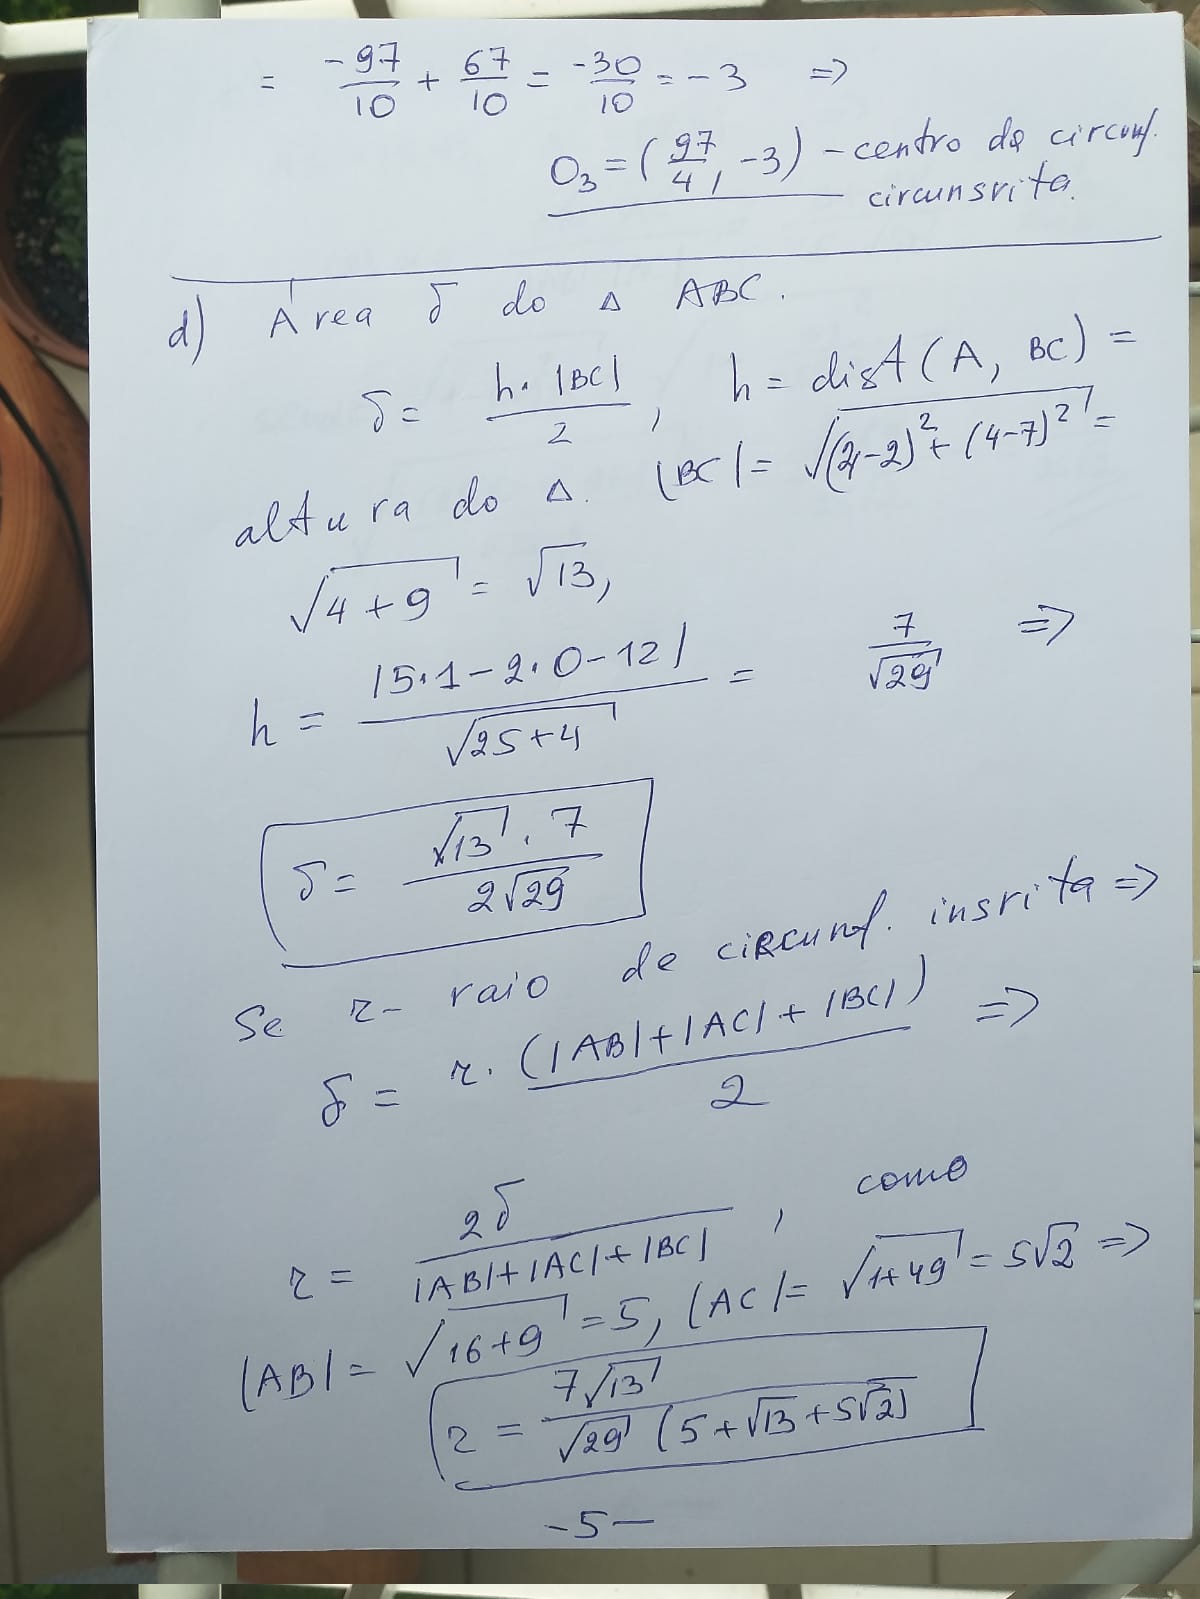 = -97/10 + 67/10 = -30/10 = -3 =>
O₃ = (97/4, -3) - centro de circunf.
circunsrita.
d) Área δ do Δ ABC.
δ = h·|BC|/2, h = dist(A, BC) =
altura do Δ. |BC| = √((4-2)² + (4-7)²) =
√(4+9) = √13,
h = |5·1-2·0-12|/√(25+4) = 7/√29 =>
δ = √13·7/2√29
Se r- raio de circunf. insrita =>
δ = r·(|AB|+|AC|+|BC|)/2 =>
r = 2δ/(|AB|+|AC|+|BC|), como
|AB| = √(16+9) = 5, |AC| = √(1+49) = 5√2 =>
r = 7√13/√29 (5+√13+5√2)
-5-